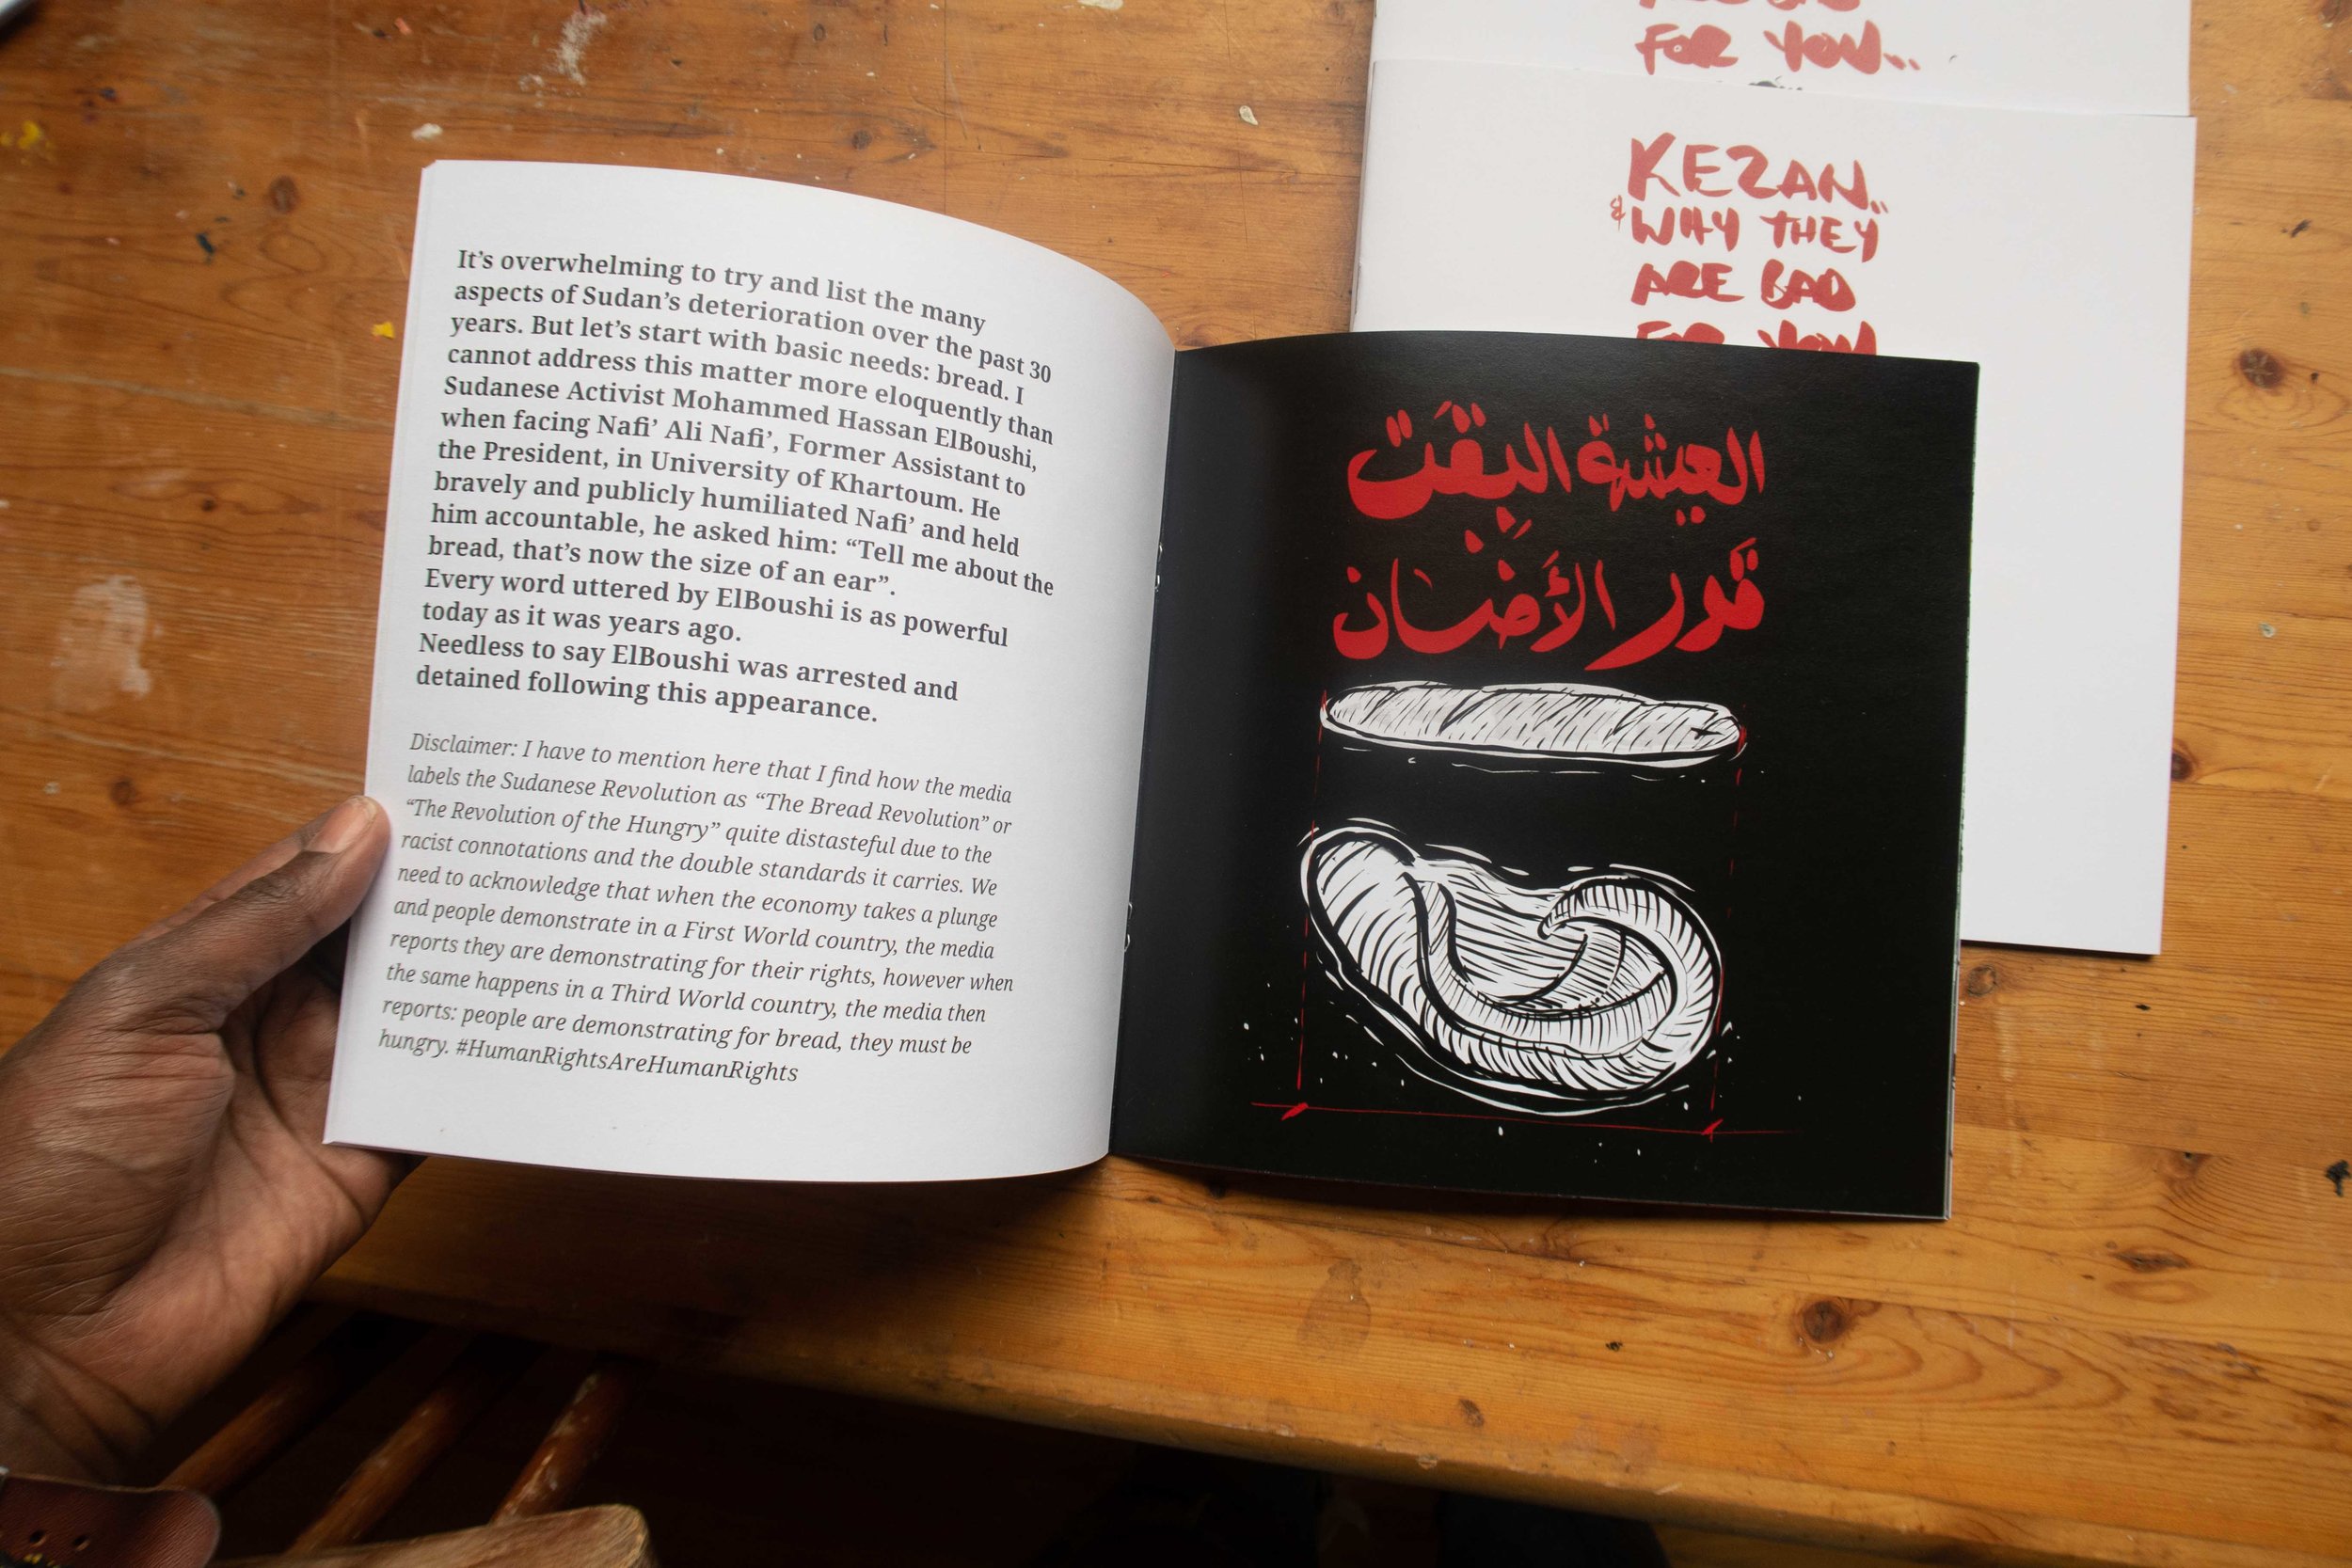 It’s overwhelming to try and list the many
aspects of Sudan’s deterioration over the past 30
years. But let’s start with basic needs: bread. I
cannot address this matter more eloquently than
Sudanese Activist Mohammed Hassan ElBoushi,
when facing Nafi’ Ali Nafi’, Former Assistant to
the President, in University of Khartoum. He
bravely and publicly humiliated Nafi’ and held
him accountable, he asked him: “Tell me about the
bread, that’s now the size of an ear”.
Every word uttered by ElBoushi is as powerful
today as it was years ago.
Needless to say ElBoushi was arrested and
detained following this appearance.
Disclaimer: I have to mention here that I find how the media
labels the Sudanese Revolution as “The Bread Revolution” or
“The Revolution of the Hungry” quite distasteful due to the
racist connotations and the double standards it carries. We
need to acknowledge that when the economy takes a plunge
and people demonstrate in a First World country, the media
reports they are demonstrating for their rights, however when
the same happens in a Third World country, the media then
reports: people are demonstrating for bread, they must be
hungry. #HumanRightsAreHumanRights
العيشة البقت
قدر الأضان
FOR YOU..
KEZAN..
& WHY THEY
ARE BAD
FOR YOU